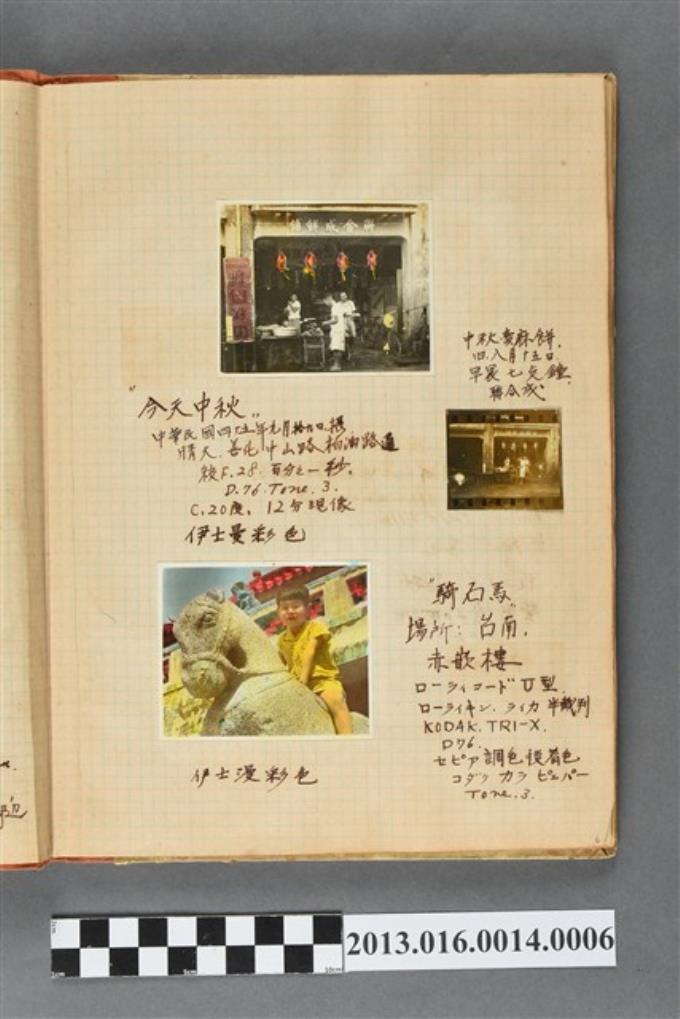 中秋賣麻餅.
旧.八月十五日
早晨七点鐘.
聯合成
"今天中秋"
中華民國四十五年元月拾九日.攝
晴天.善化中山路柏油路道
絞F.28.百分之一秒.
D.76.Tone.3.
C.20度. 12分現像
伊士曼彩色
"騎石馬"
場所:台南.
赤嵌樓
ローライコードⅤ型.
ローライキン.ライカ半裁判
KODAK.TRI-X.
D76.
セピア調色後着色
コダックカラ
Tone.3.
伊士漫彩色
6
2013.016.0014.0006